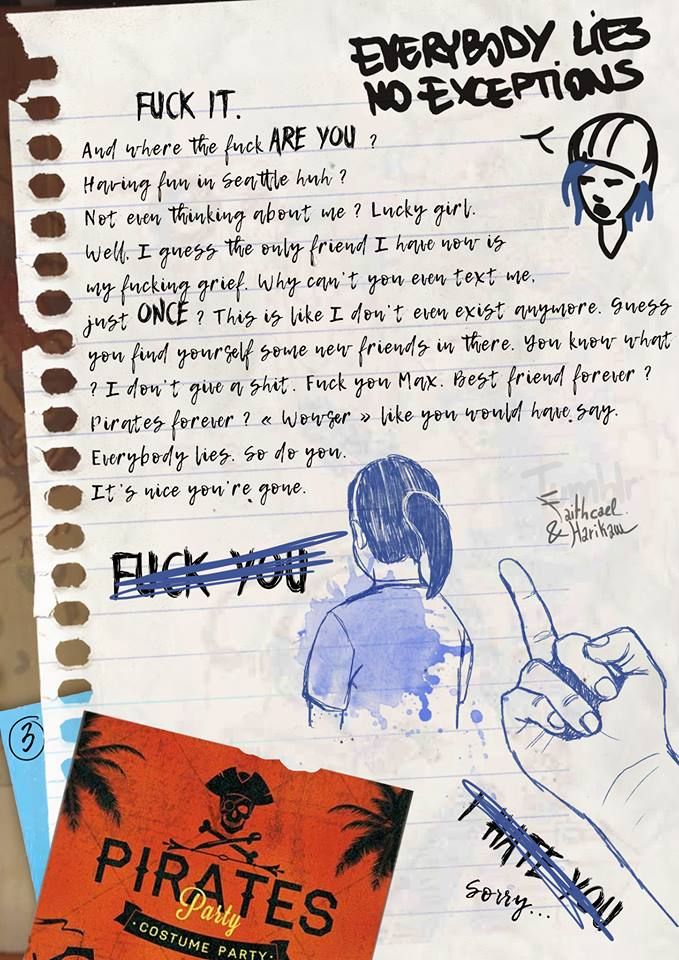 EVERYBODY LIES
NO EXCEPTIONS
FUCK IT.
And where the fuck ARE YOU ?
Having fun in Seattle huh ?
Not even thinking about me ? Lucky girl.
Well, I guess the only friend I have now is
my fucking grief. Why can't you even text me,
just ONCE ? This is like I don't even exist anymore. Guess
you find yourself some new friends in there. You know what
? I don't give a shit. Fuck you Max. Best friend forever ?
Pirates forever ? « Wowser » like you would have say.
Everybody lies. So do you.
It's nice you're gone.
Tumblr
Faithcael
& Harikaw
FUCK YOU
3
I HATE YOU
Sorry...
PIRATES
Party
·COSTUME PARTY·